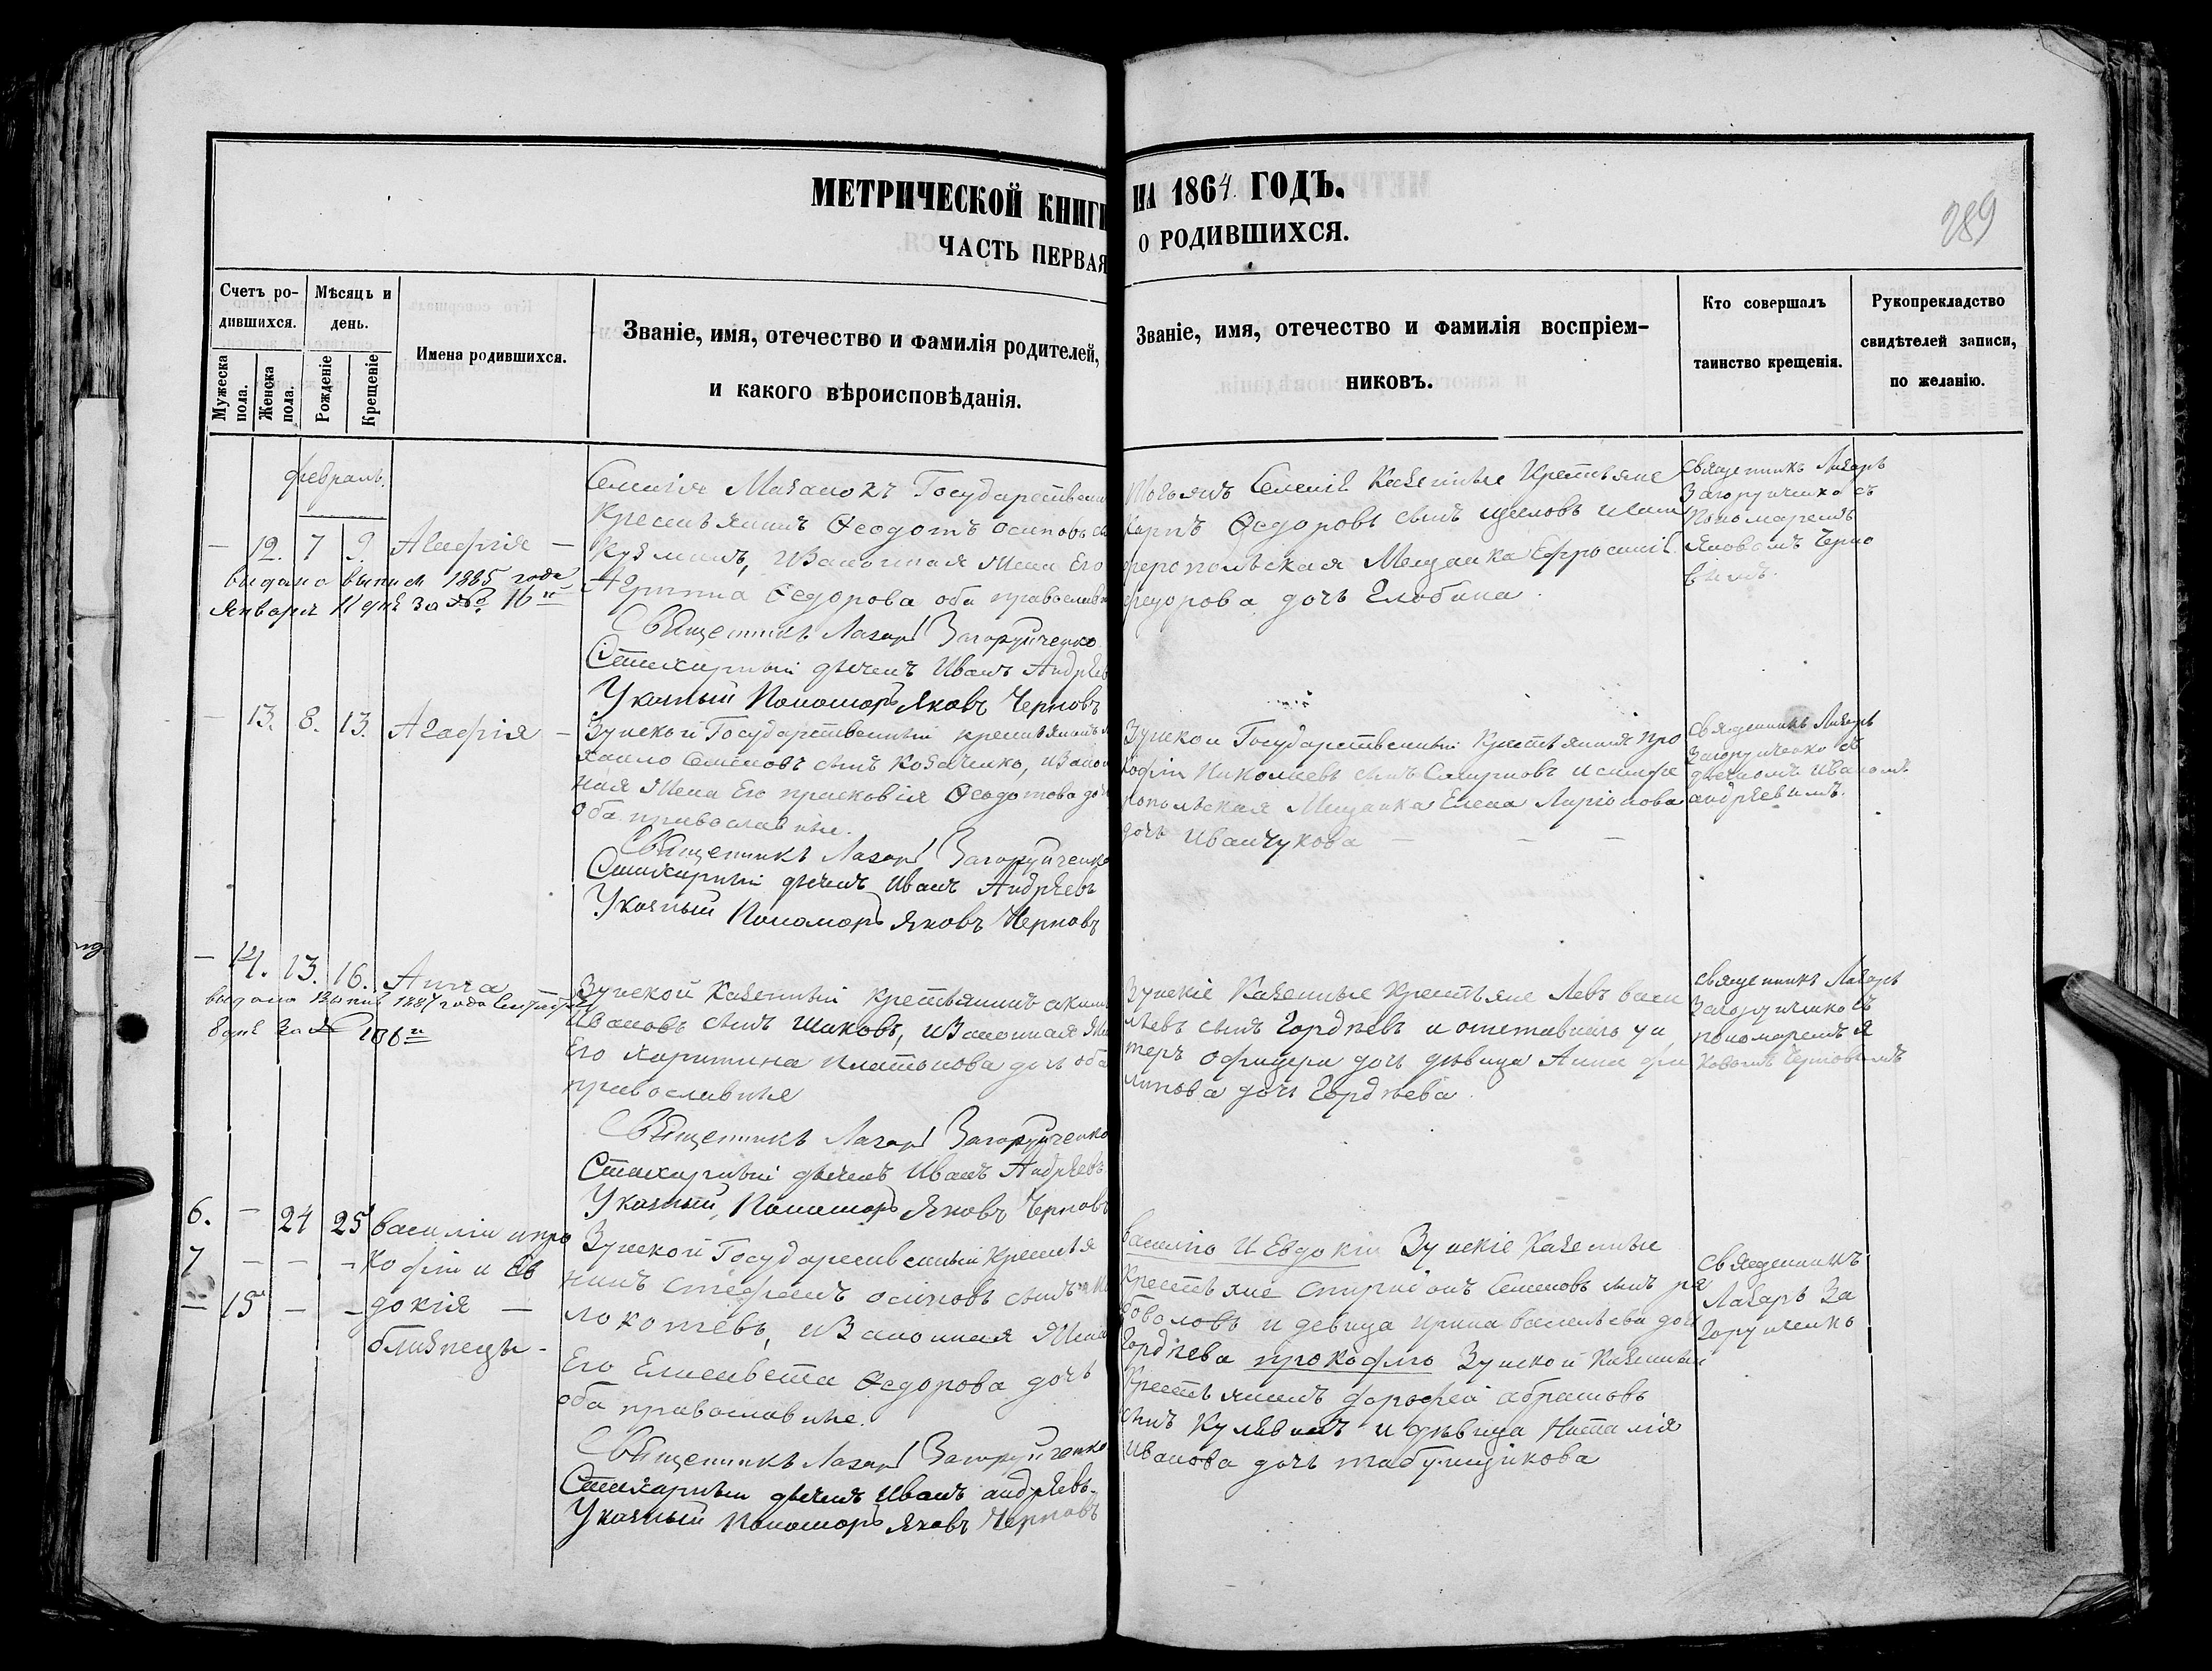 МЕТРИЧЕСКОЙ КНИГИ
ЧАСТЬ ПЕРВАЯ
НА 1864 ГОДЪ.
О РОДИВШИХСЯ.
289
Счетъ ро-
дившихся.
Мужеска пола.
Женска пола.
Мѣсяцъ и
день.
Рожденіе
Крещеніе
Имена родившихся.
Званіе, имя, отечество и фамилія родителей,
и какого вѣроисповѣданія.
Званіе, имя, отечество и фамилія воспріем-
никовъ.
Кто совершалъ
таинство крещенія.
Рукоприкладство
свидѣтелей записи,
по желанію.
февраль.
— 12. 7 9. Агафія —
выдана выпись 1885 года
Января 11 дня за № 16
Государственный
крестьянинъ Ѳеодотъ осиповъ
Кузминъ, и Законная Жена Его
Ѳедорова оба православн
Священникъ Лазарь Загоруйченко
Стихарный дьячекъ Иванъ Андрѣевъ
Указный Пономарь Яковъ Черновъ
Казенные Крестьяне
Карпъ Ѳедоровъ сынъ
Мещанка Ефросинія
федорова дочь Глобина
Священникъ Лазарь
Загоруйченко съ
Пономаремъ
Яковомъ Черно
вымъ.
— 13. 8. 13. Агафія —
Зуйской Государственный крестьянинъ
Семеновъ сынъ Козаченко, и Закон
ная Жена Его прасковія Ѳеодотова дочь
оба православные.
Священникъ Лазарь Загоруйченко
Стихарный дьячекъ Иванъ Андрѣевъ
Указный Пономарь Яковъ Черновъ
Зуйской Государственный Крестьянинъ про
кофій Николаевъ сынъ Смирновъ и симфе
ропольская Мещанка Елена Ларіонова
дочь Иванчукова — — —
Священникъ Лазарь
Загоруйченко съ
дьячкомъ Иваномъ
андрѣевымъ.
— 14. 13. 16. Анна
выдана выпись 1884 года Сентября
8 дня за № 106
Зуйской Казенный Крестьянинъ
Ивановъ сынъ Шиковъ, и Законная Жена
Его Харитина Платонова дочь оба
православные
Священникъ Лазарь Загоруйченко
Стихарный дьячекъ Иванъ Андрѣевъ
Указный Пономарь Яковъ Черновъ
Зуйскіе Казенные Крестьяне Левъ васи
льевъ сынъ Гордѣевъ и отставнаго ун
теръ офицера дочь дѣвица Анна фи
липова дочь Гордѣева.
Священникъ Лазарь
Загоруйченко съ
пономаремъ Я
ковомъ Черновымъ
6. — 24 25 василій и про
7 — — — кофій и Ев
— 15 — — докія —
близнецы —
Зуйской Государственный Крестья
нинъ Стефанъ осиповъ сынъ Мо
локотевъ, и Законная Жена
Его Елисавета Ѳедорова дочь
оба православные.
Священникъ Лазарь Загоруйченко
Стихарный дьячекъ Иванъ андрѣевъ
Указный Пономарь Яковъ Черновъ
василію И Евдокіи Зуйскіе Казенные
Крестьяне Спиридонъ Семеновъ сынъ ря
боволовъ и девица Ирина васильева дочь
Гордѣева прокофію Зуйской Казенный
Крестьянинъ дорофей абрамовъ
сынъ и дѣвица Наталія
Иванова дочь табунщикова
Священникъ
Лазарь За
горуйченко